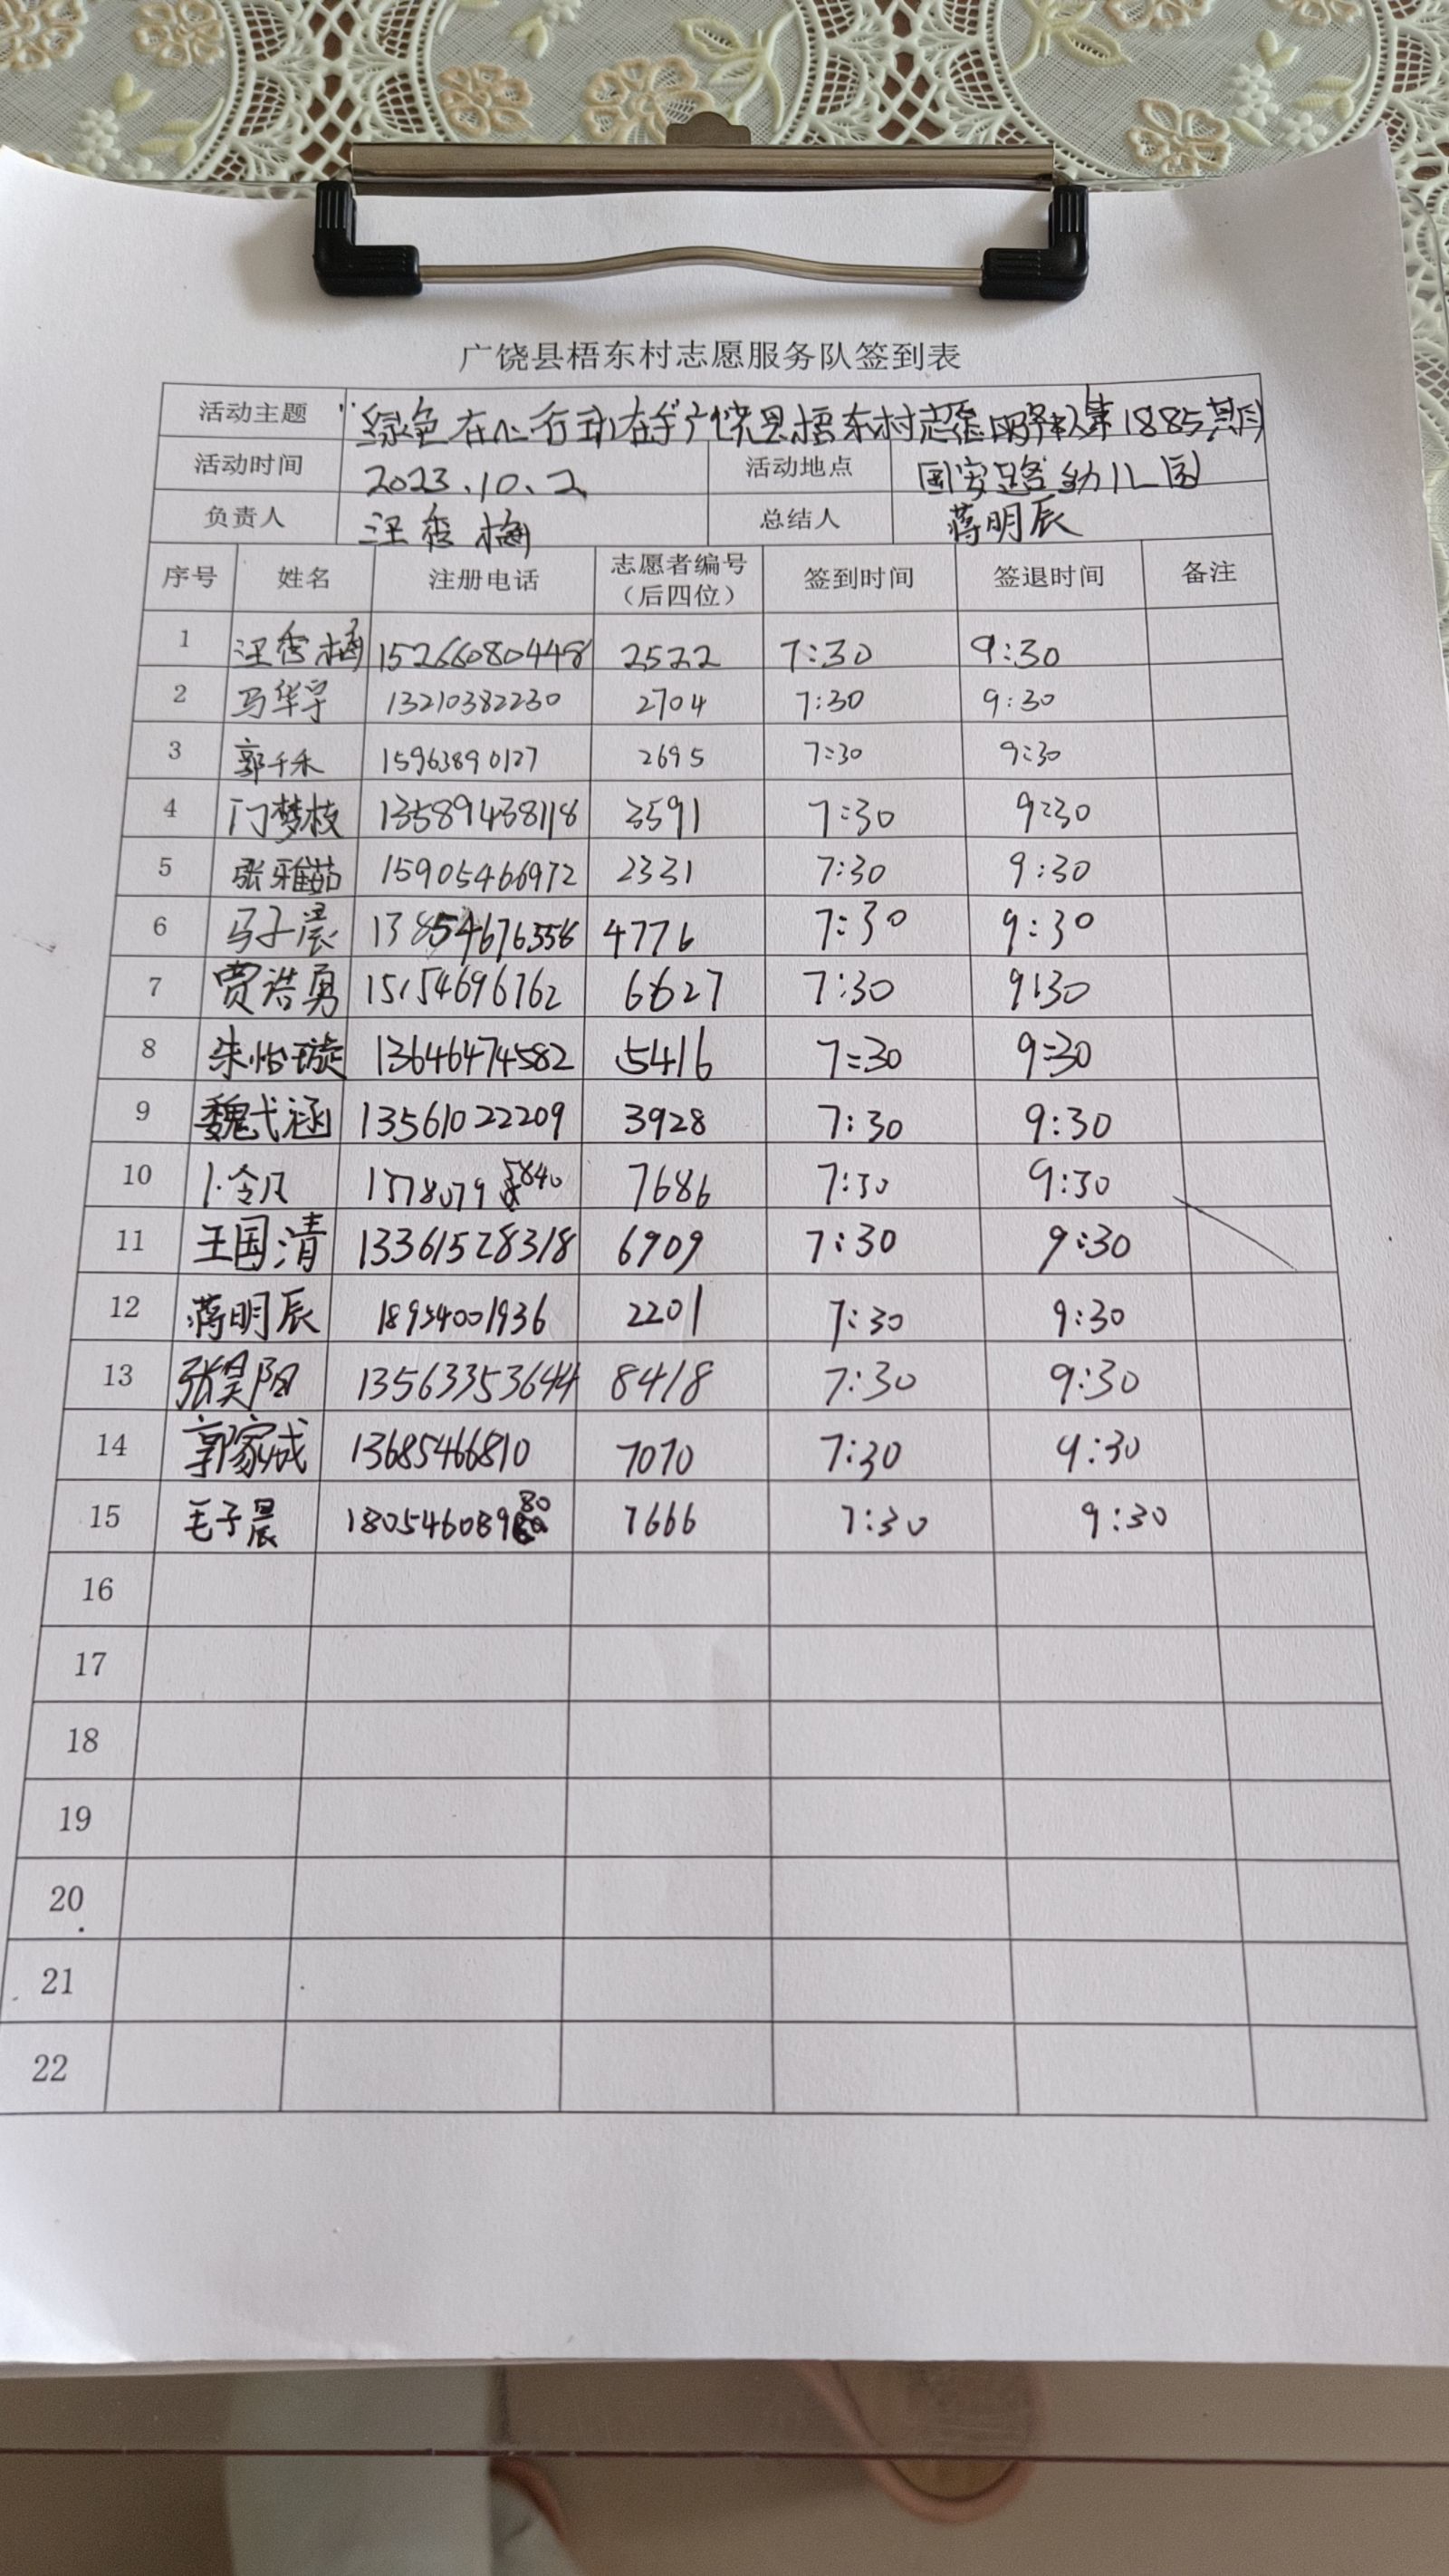 广饶县梧东村志愿服务队签到表
活动主题 "绿色在心行动在手广饶县梧东村志愿服务队第1885期
活动时间 2023.10.2 活动地点 国安路幼儿园
负责人 汪秀梅 总结人 蒋明辰
序号 姓名 注册电话 志愿者编号（后四位） 签到时间 签退时间 备注
1 汪秀梅 15266080448 2522 7:30 9:30
2 马华宇 13210382230 2704 7:30 9:30
3 郭千禾 15963890127 2695 7:30 9:30
4 门梦枝 13589438118 3591 7:30 9:30
5 张雅茹 15905466972 2331 7:30 9:30
6 马子晨 13854676558 4776 7:30 9:30
7 贾浩勇 15154696762 6627 7:30 9:30
8 朱怡璇 13646474582 5416 7:30 9:30
9 魏弋涵 13561022209 3928 7:30 9:30
10 7686 7:30 9:30
11 王国清 13361528318 6909 7:30 9:30
12 蒋明辰 18954001936 2201 7:30 9:30
13 张昊阳 13563353644 8418 7:30 9:30
14 郭家成 13685466810 7070 7:30 9:30
15 毛子晨 18054608980 7666 7:30 9:30
16
17
18
19
20
21
22